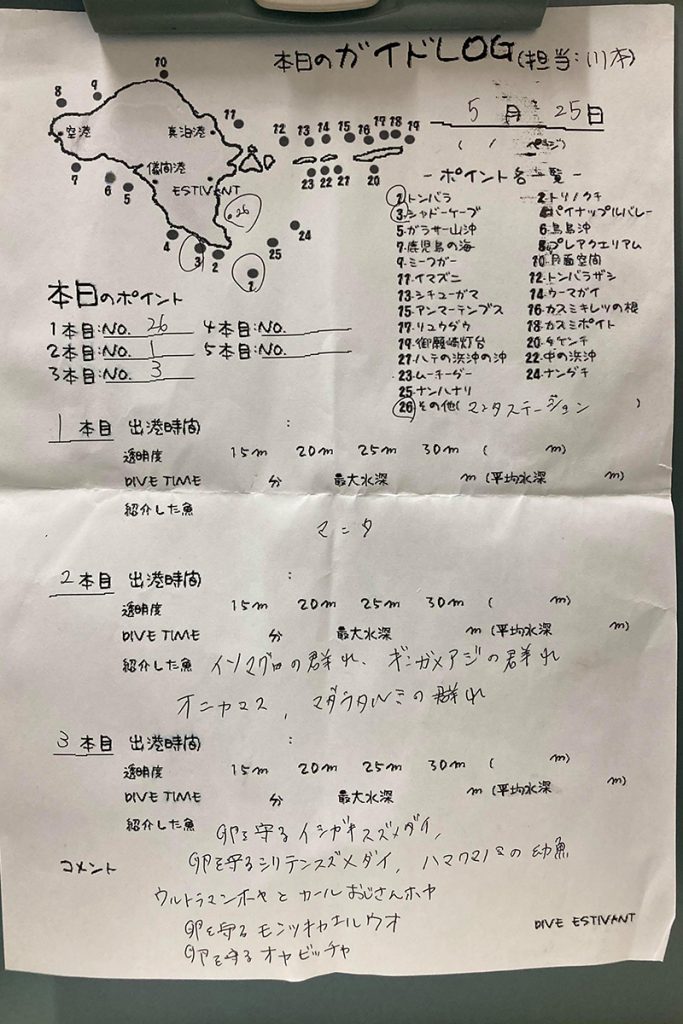 本日のガイドLOG(担当:川本)
5月 25日
( / ページ)
10
8 9
空港 真泊港 11
儀間港
7 6 5 ESTIVANT
26
12 13 14 15 16 17 18 19
23 22 21 20
4 3 2 1 25 24
- ポイント名一覧 -
1.トンバラ 2.トリノクチ
3.シャドーケーブ 4.パイナップルバレー
5.ガラサー山沖 6.鳥島沖
7.鹿児島の海 8.プレアクエリアム
9.ミーフガー 10.月面空間
11.イマズニ 12.トンバラザシ
13.シチューガマ 14.ウーマガイ
15.アンマーテンプス 16.カスミキレツの根
17.リュウグウ 18.カスミポイント
19.御願崎灯台 20.チゲンチ
21.ハテの浜沖の沖 22.中の浜沖
23.ムーチーグー 24.ナングチ
25.ナンハナリ
26.その他(マンタステーション )
本日のポイント
1本目:NO. 26 4本目:NO.
2本目:NO. 1 5本目:NO.
3本目:NO. 3
1 本目 出港時間 :
透明度 15m 20m 25m 30m ( m)
DIVE TIME 分 最大水深 m (平均水深 m)
紹介した魚
マンタ
2 本目 出港時間 :
透明度 15m 20m 25m 30m ( m)
DIVE TIME 分 最大水深 m (平均水深 m)
紹介した魚 イソマグロの群れ、ギンガメアジの群れ
オニカマス、マダラタルミの群れ
3 本目 出港時間 :
透明度 15m 20m 25m 30m ( m)
DIVE TIME 分 最大水深 m (平均水深 m)
紹介した魚 卵を守るイシガキスズメダイ、
卵を守るシリテンスズメダイ、ハマクマノミの幼魚
コメント
ウルトラマンホヤとカールおじさんホヤ
卵を守るモンツキカエルウオ
卵を守るオヤビッチャ
DIVE ESTIVANT